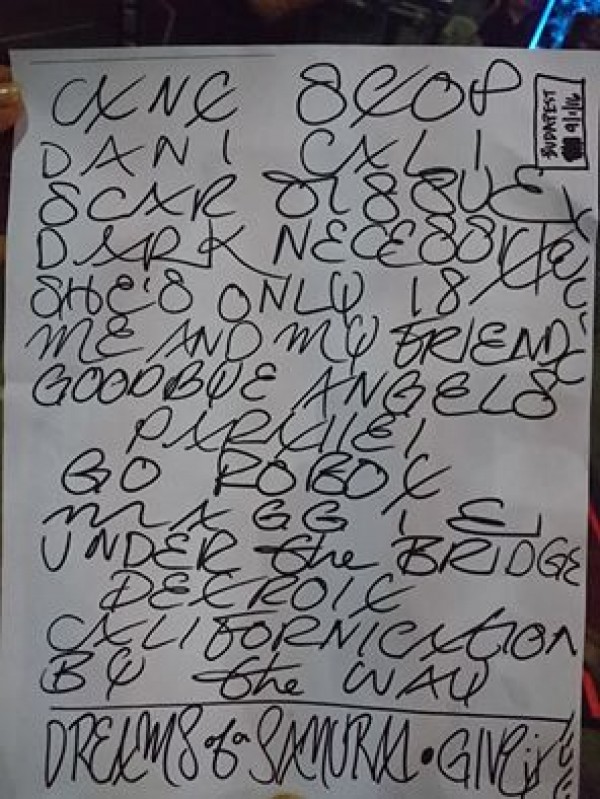 CAN'T STOP
BUDAPEST
9/1/16
DANI CALI
SCAR TISSUE
DARK NECESSITIES
SHE'S ONLY 18
ME AND MY FRIENDS
GOODBYE ANGELS
PARALLEL
GO ROBOT
MAGGIE
UNDER the BRIDGE
DETROIT
CALIFORNICATION
BY the WAY
DREAMS of a SAMURAI • GIVE it